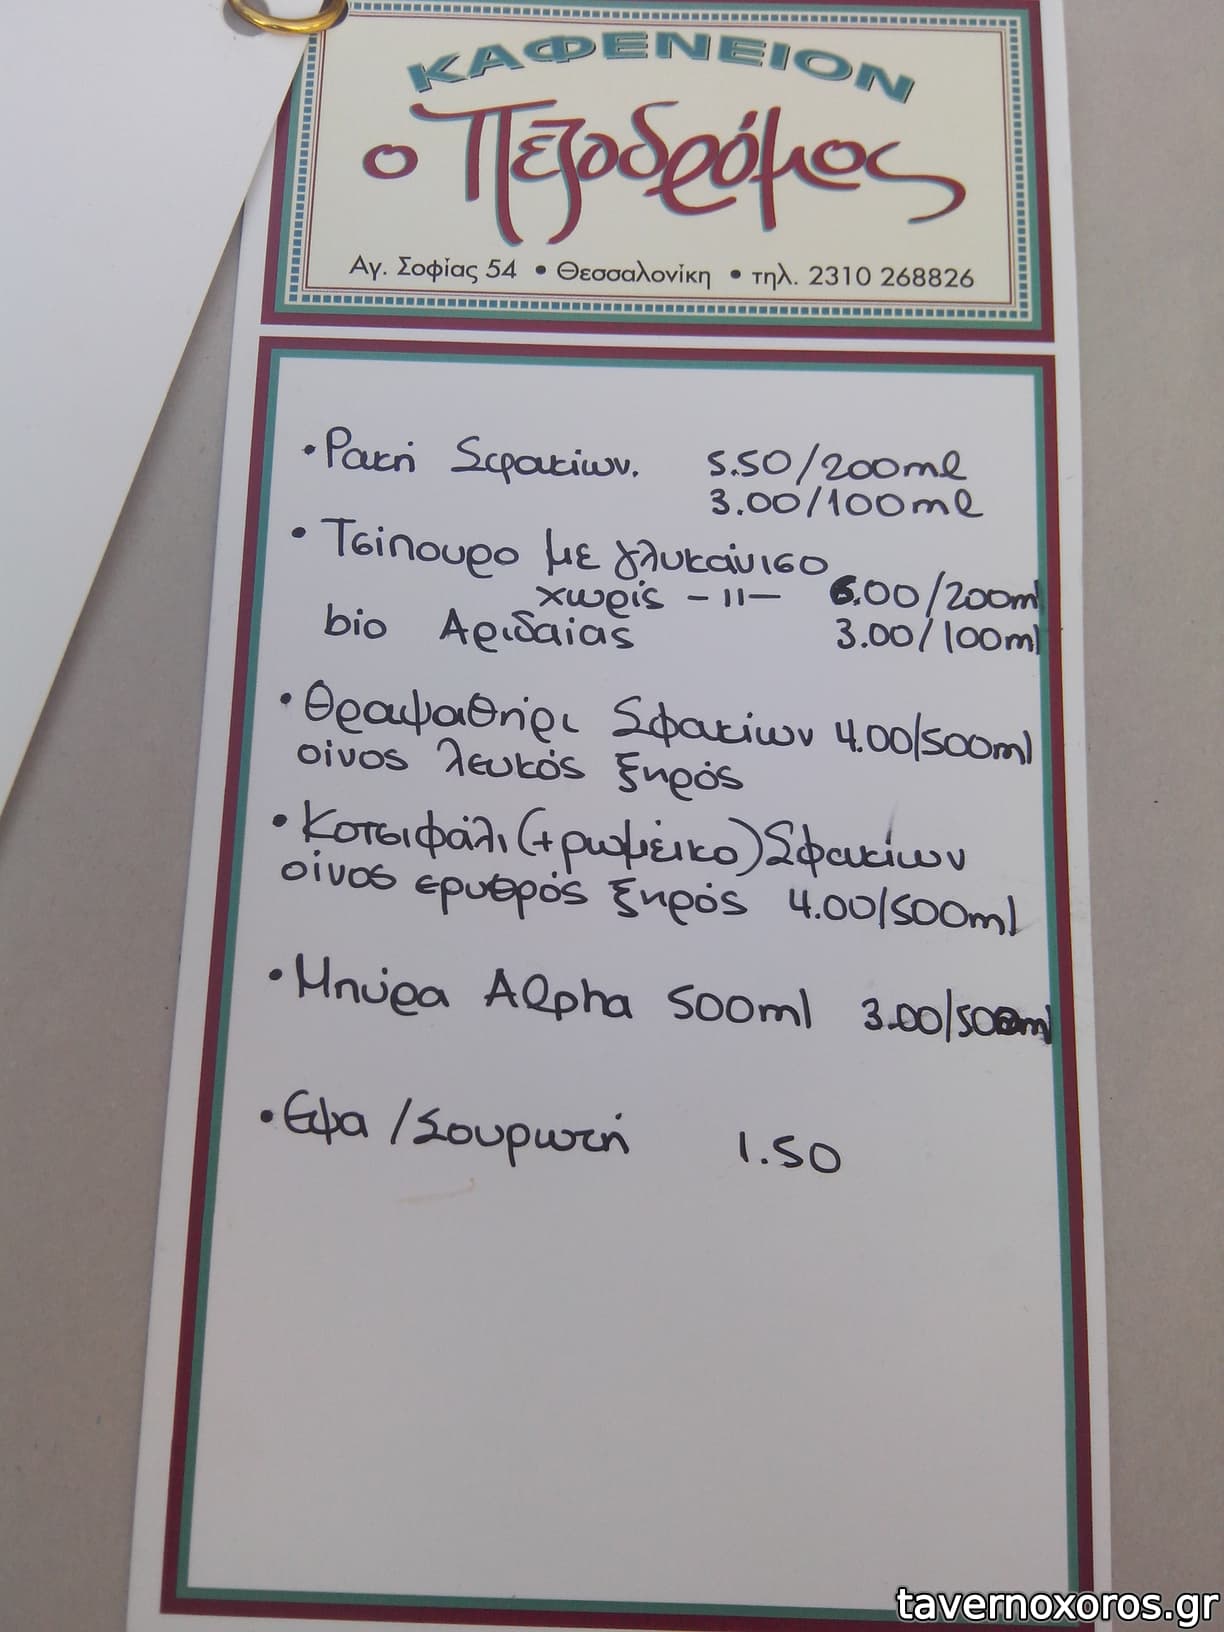 ΚΑΦΕΝΕΙΟΝ
ο Πεζοδρόμος
Αγ. Σοφίας 54 • Θεσσαλονίκη • τηλ. 2310 268826
• Ρακή Σφακίων. 5.50/200ml
3.00/100ml
• Τσίπουρο με γλυκάνισο
χωρίς -11- 6.00/200ml
bio Αριδαίας 3.00/100ml
• Θραψαθήρι Σφακίων 4.00/500ml
οίνος λευκός ξηρός
• Κοτσιφάλι (+ρωμέικο) Σφακίων
οίνος ερυθρός ξηρός 4.00/500ml
• Μπύρα Alpha 500ml 3.00/500ml
• Εψα /Σουρωτή 1.50
tavernoxoros.gr